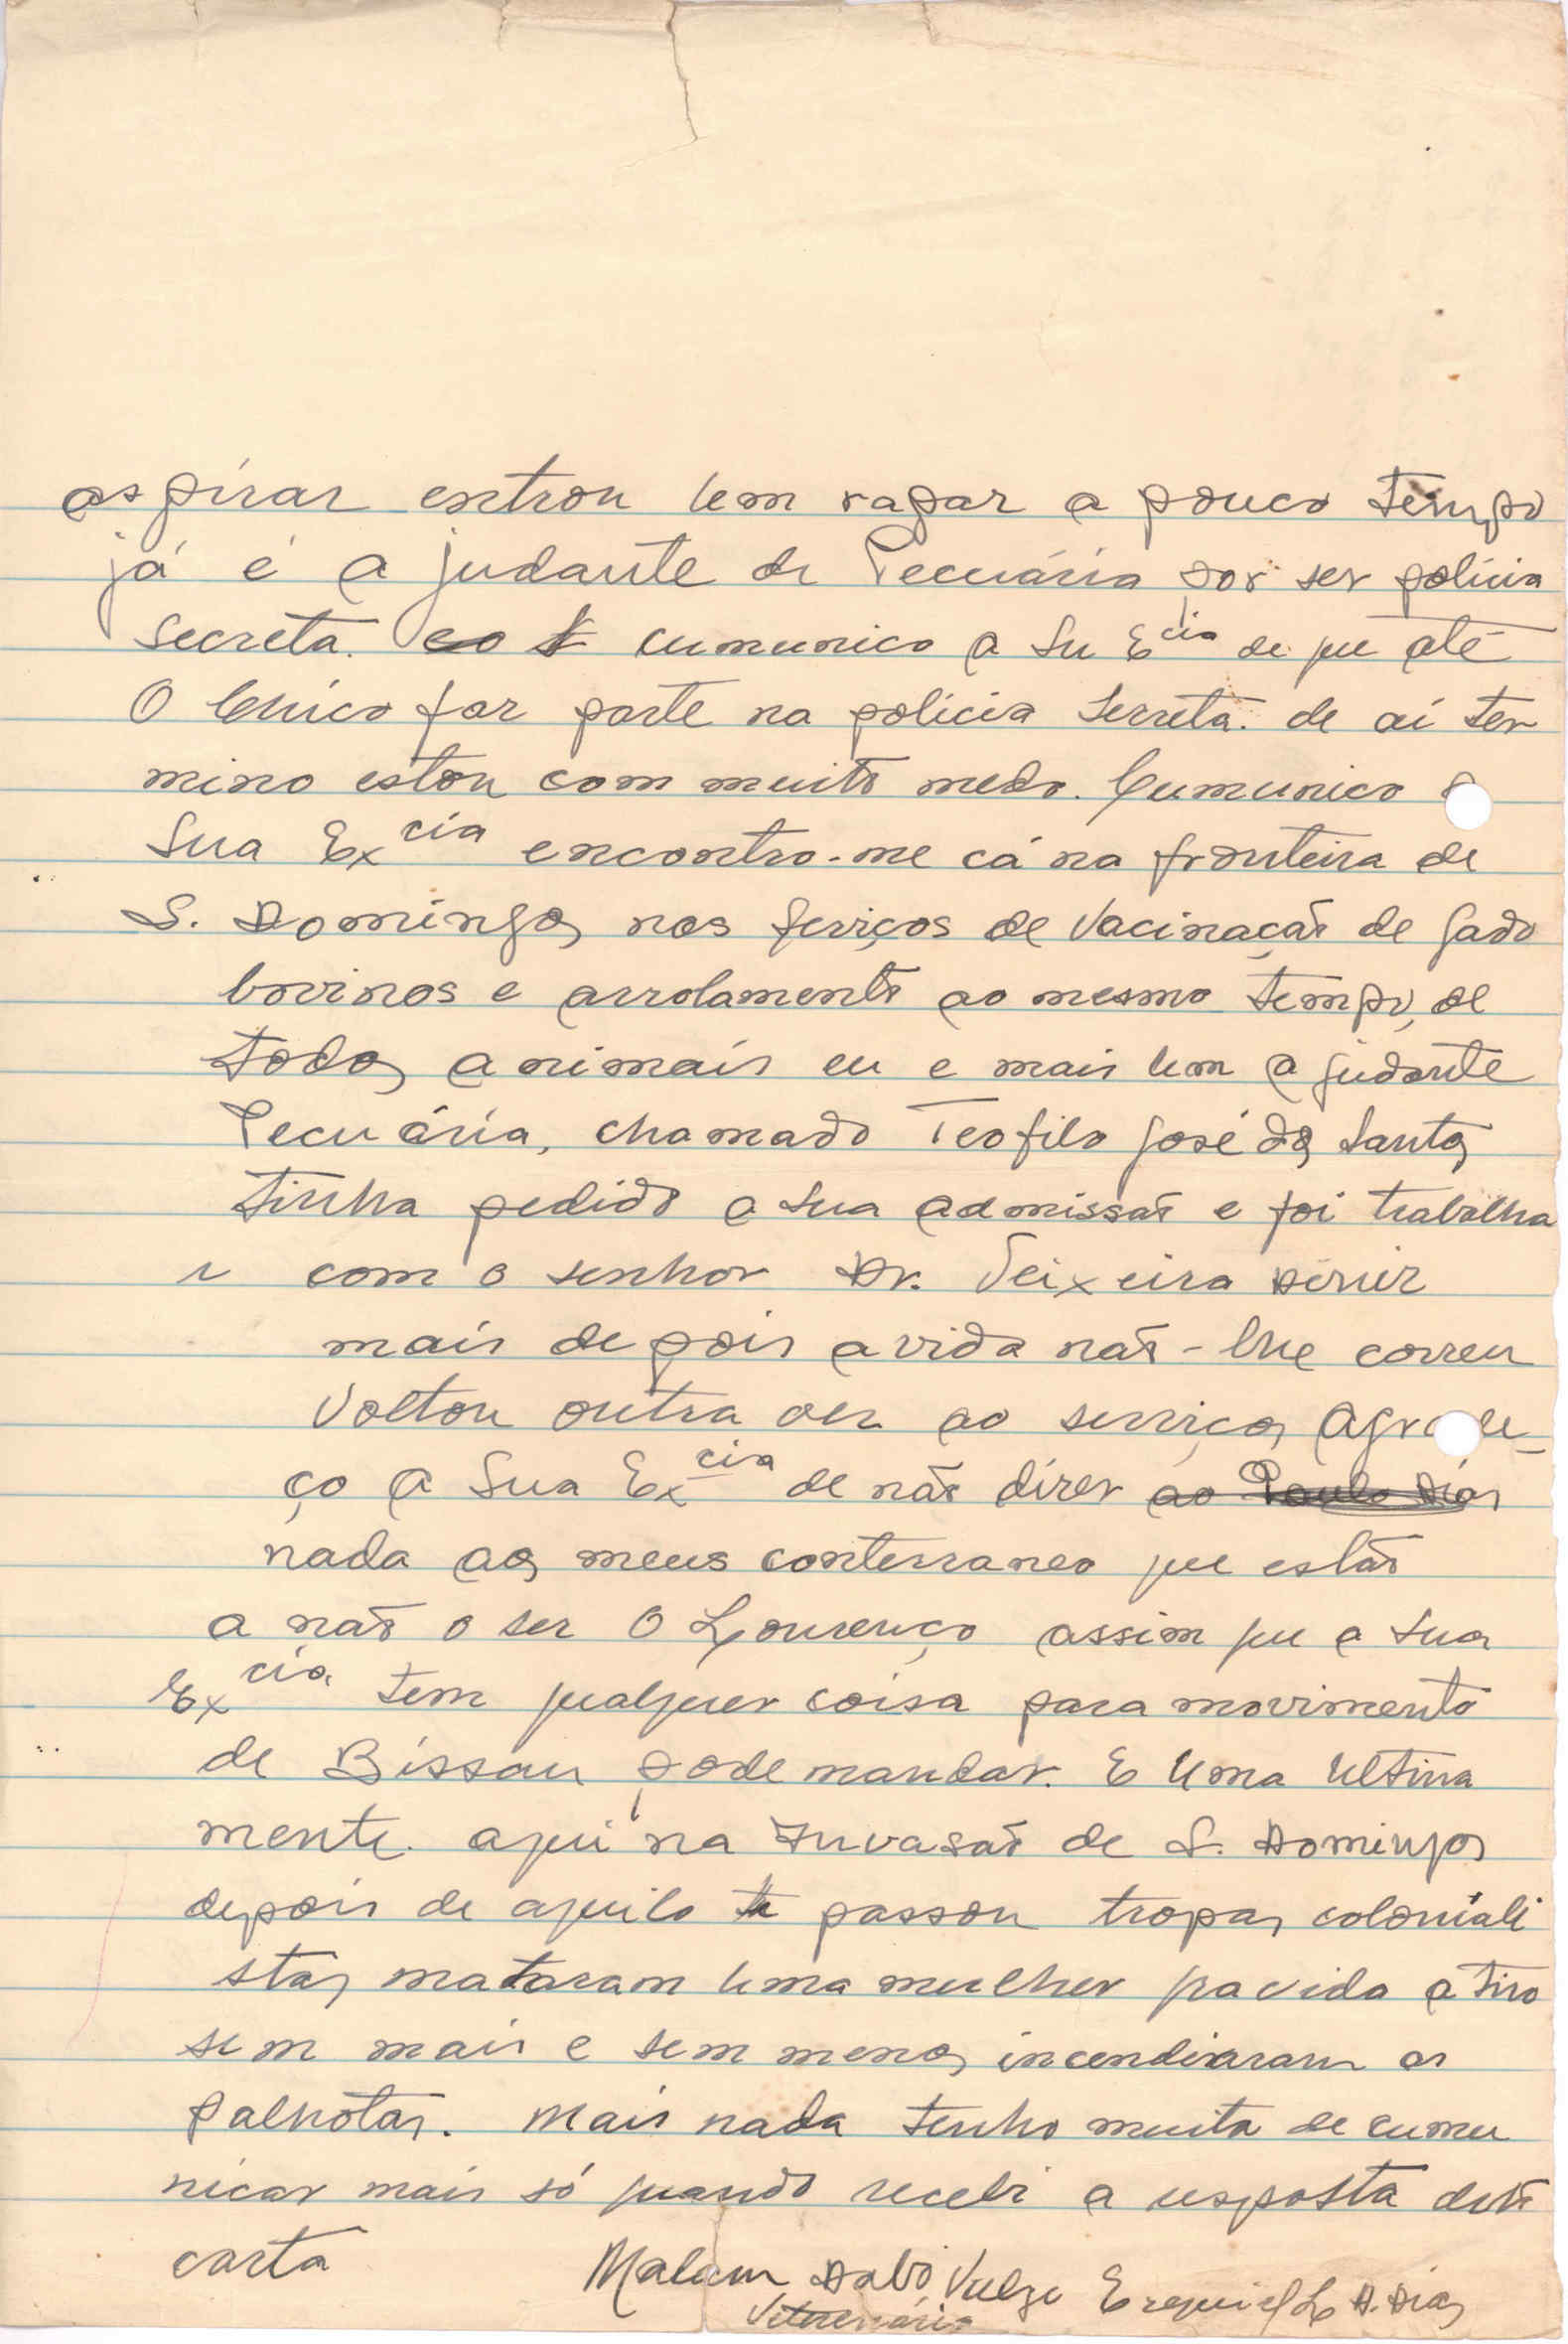 aspirar entrou um rapar a pouco tempo
já é a judante de Pecuária por ser policia
secreta. eo cumunico a Su Ecia de que até
O Chico far parte na policia secreta. de aí ter
mino estou com muito medo. Cumunico a
Sua Excia encontro-me cá na fronteira de
S. Domingos nos serviços de Vacinação de gado
bovinos e arrolamento ao mesmo tempo, de
todos animais eu e mais um ajudante
Pecuária, chamado Teofilo José dos Santos
tinha pedido a sua admissão e foi trabalha
r com o senhor Dr. Teixeira
mais depois a vida não-lhe correu
Voltou outra ver ao serviços Agrade-
ço a Sua Excia de não direr ao Paulo Dias
nada aos meus conterraneo que estão
a não o ser O Lourenço assim que a sua
Excia tem qualquer coisa para movimento
de Bissau pode mandar. E Uma Ultima
mente. aqui na Invasão de S. Domingos
depois de aquilo passou tropas coloniali
stas mataram uma mulher gravida a tiro
sem mais e sem menos incendiaram as
palhotas. mais nada tenho muita de cumu
nicar mais só quando recebi a resposta deste
carta
Malam Dabó Vulgo Ezequiel L. D. Dias
Veterenário